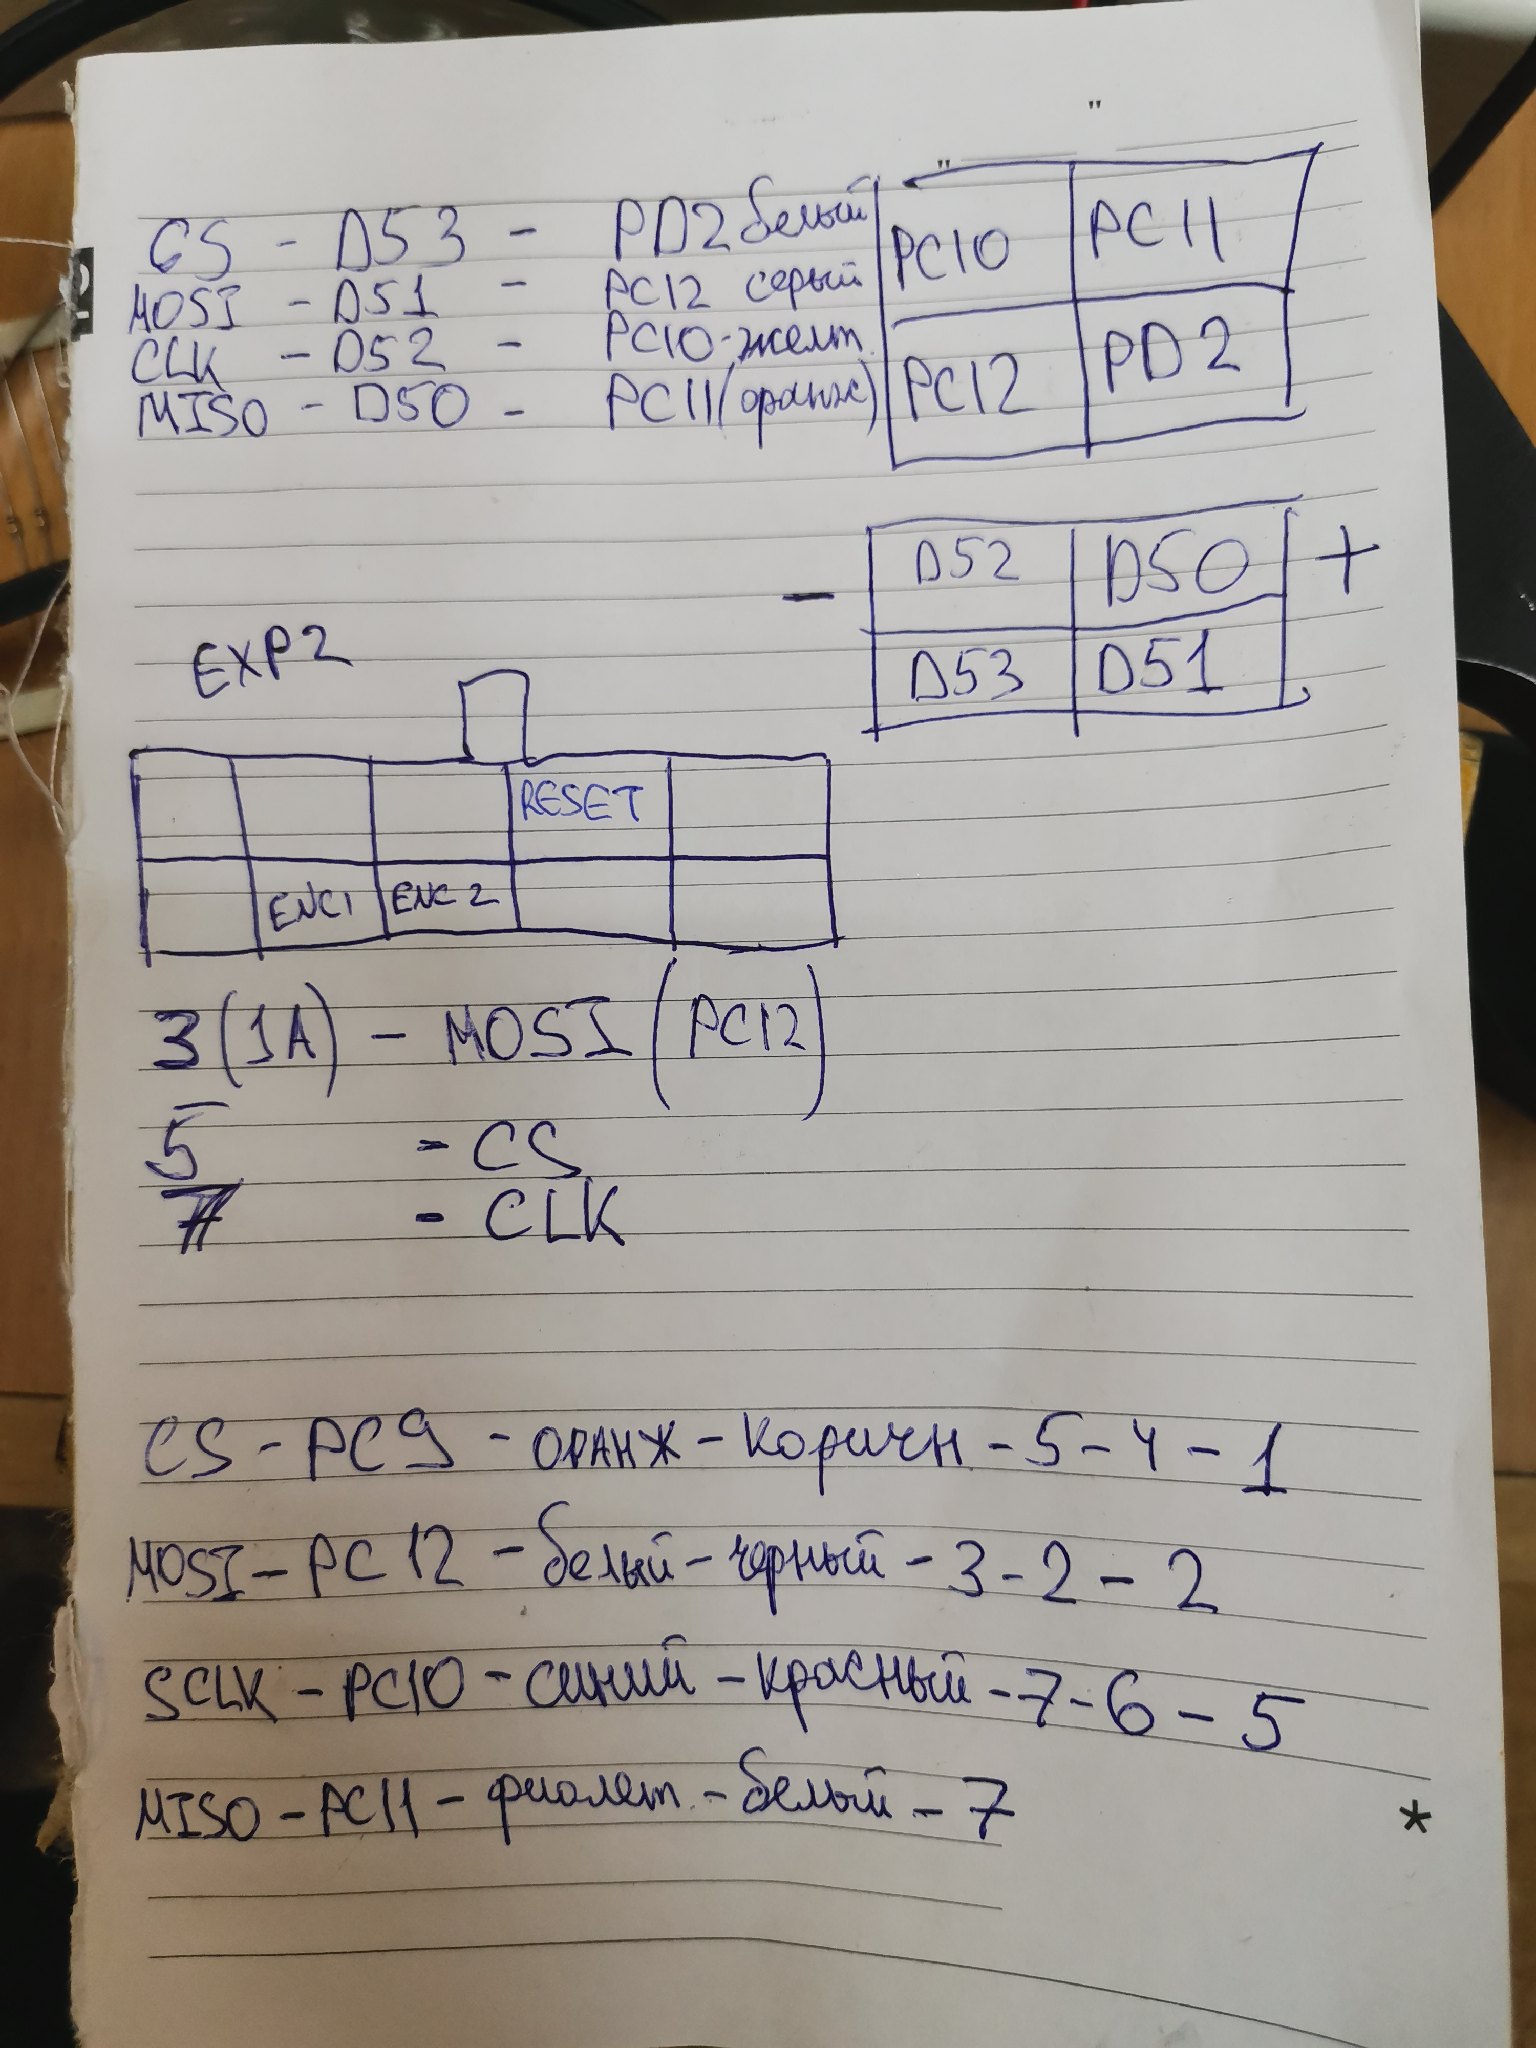 CS - D53 - PD2 белый
MOSI - D51 - PC12 серый
CLK - D52 - PC10-желт
MISO - D50 - PC11 (оранж)
PC10 PC11
PC12 PD2
- D52 D50 +
D53 D51
EXP2
RESET
ENC1 ENC2
3(1A) - MOSI (PC12)
5 - CS
7 - CLK
CS - PC9 - ОРАНЖ - Коричн - 5 - 4 - 1
MOSI - PC12 - белый - черный - 3 - 2 - 2
SCLK - PC10 - синий - красный - 7 - 6 - 5
MISO - PC11 - фиолет. - белый - 7
*